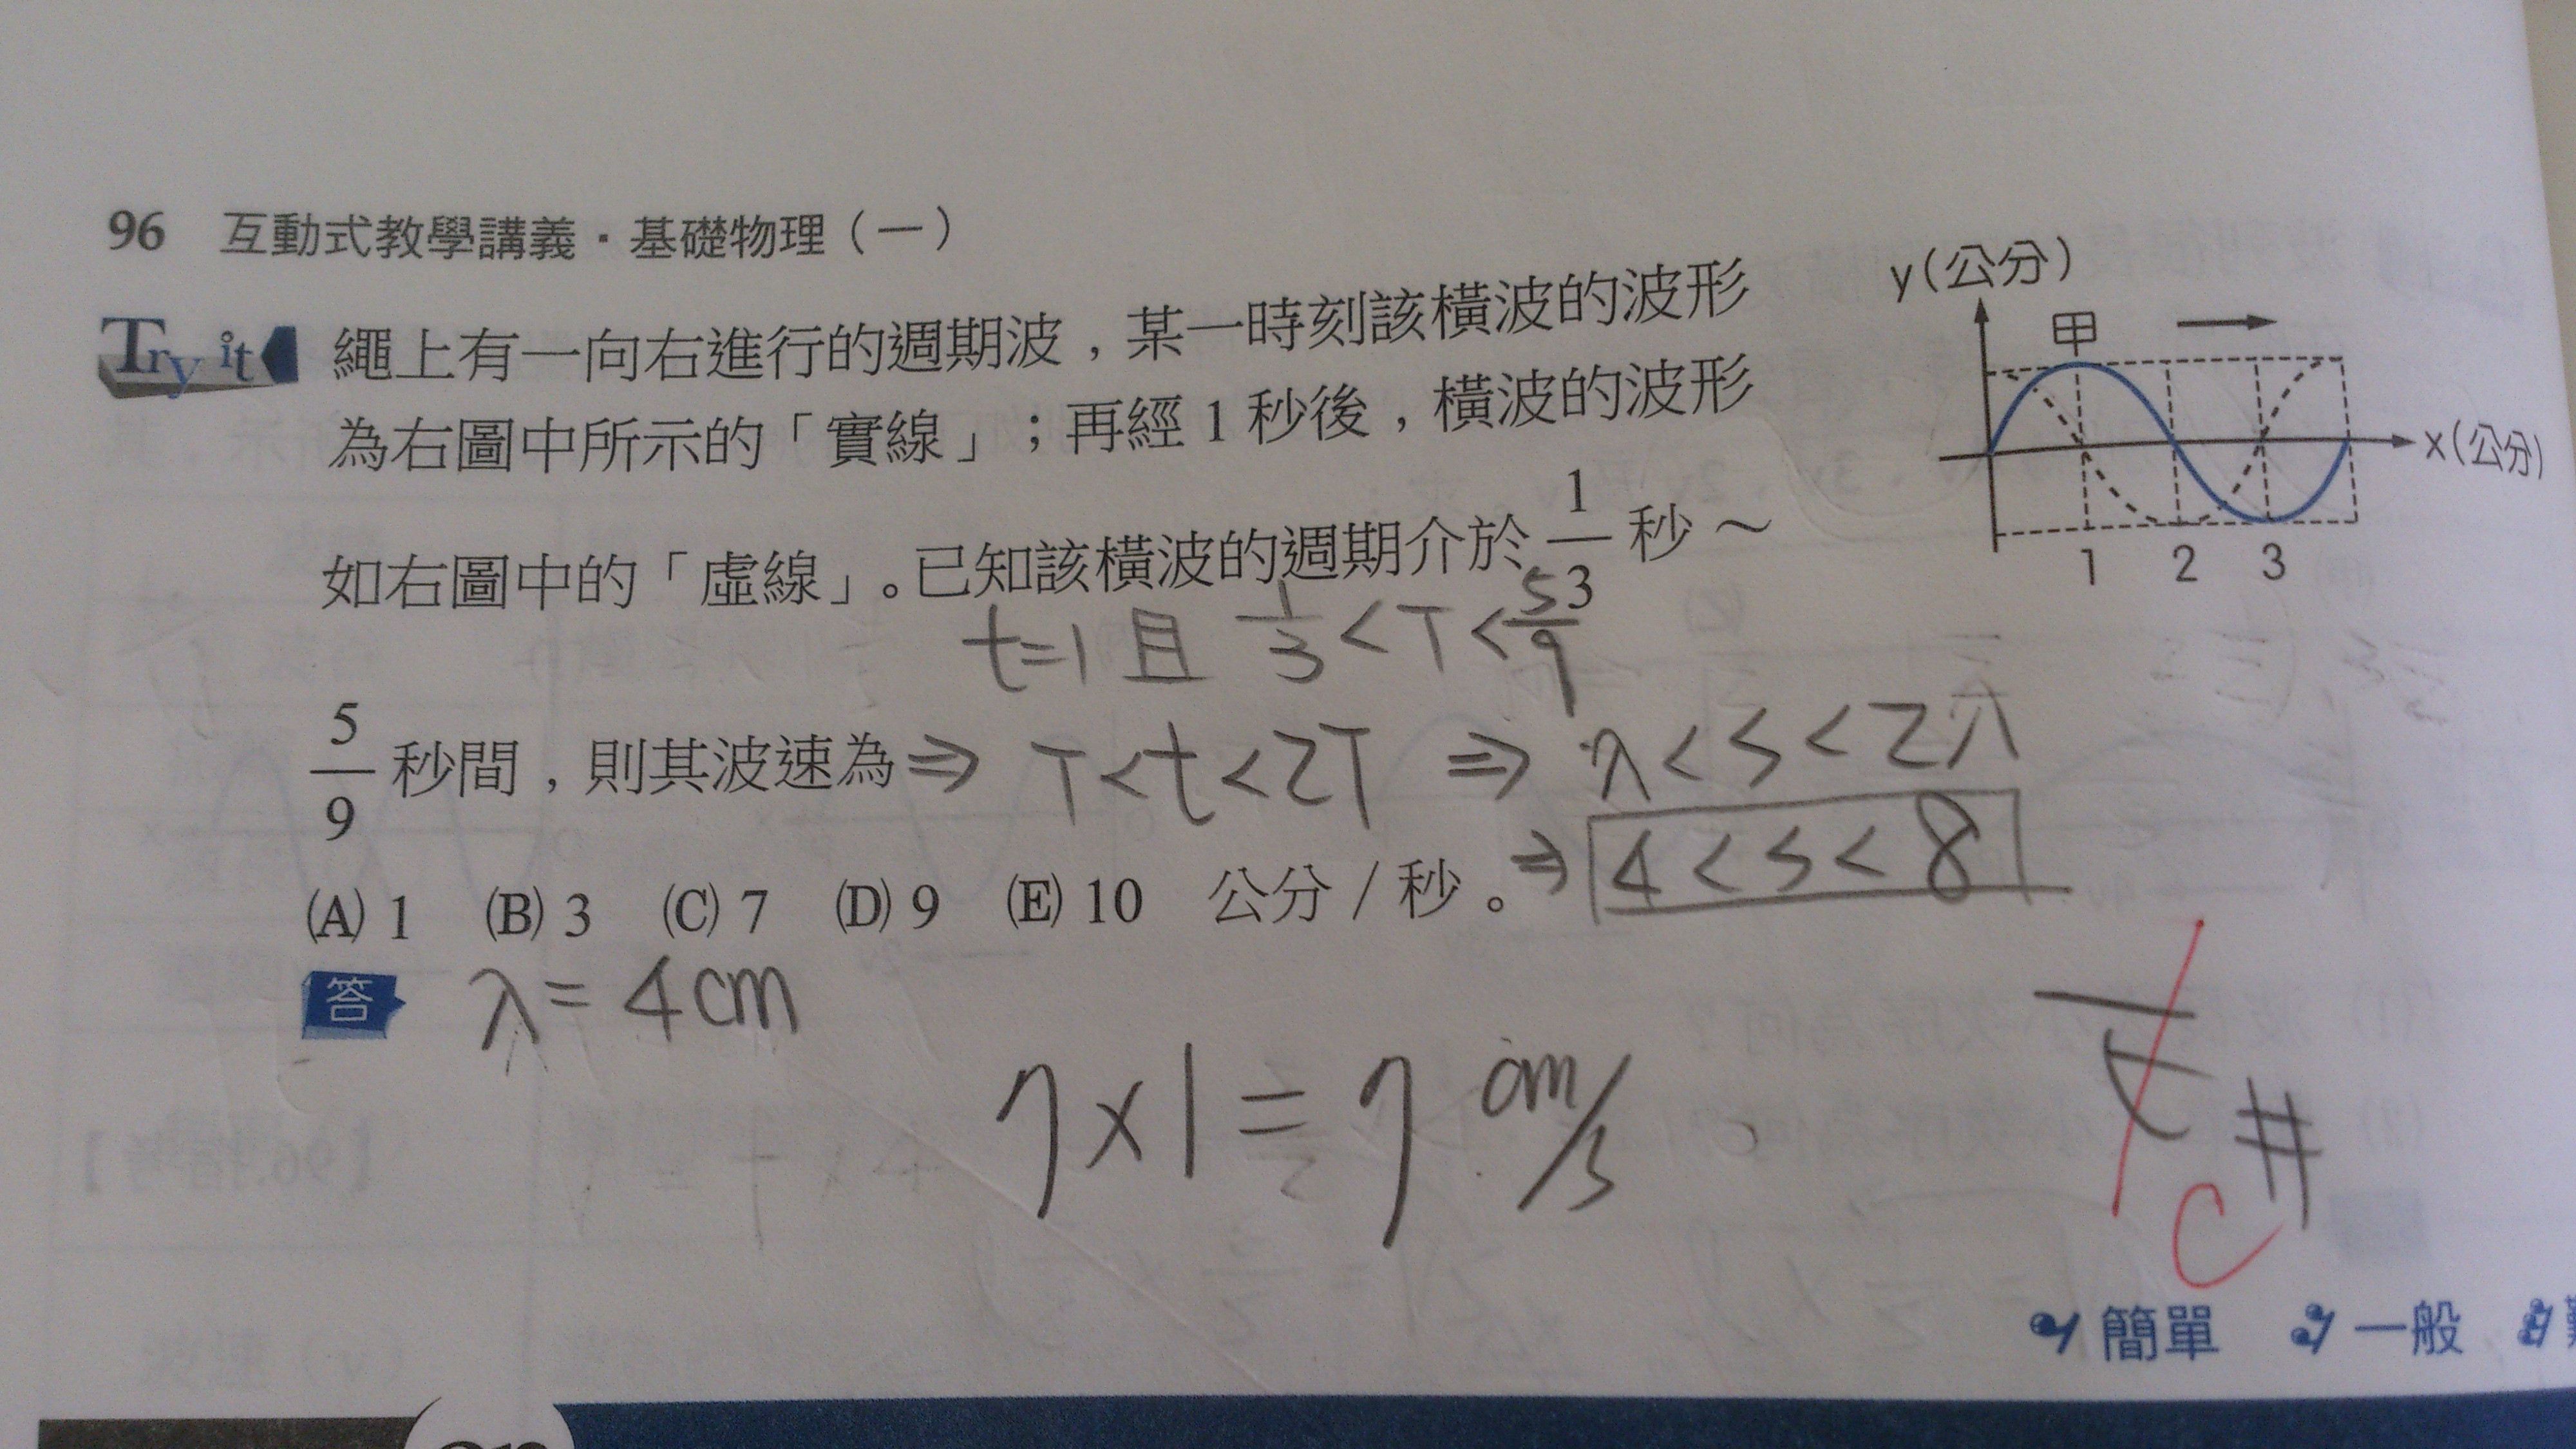 96 互動式教學講義·基礎物理(一)
Try it 繩上有一向右進行的週期波，某一時刻該橫波的波形
為右圖中所示的「實線」；再經 1 秒後，橫波的波形
如右圖中的「虛線」。已知該橫波的週期介於 1/3 秒～
t=1 且 1/3 < T < 5/9
5/9 秒間，則其波速為
⇒ T < t < 2T ⇒ λ < s < 2λ
⇒ 4 < s < 8
(A) 1 (B) 3 (C) 7 (D) 9 (E) 10 公分／秒。
答 λ = 4cm
7 × 1 = 7 cm/s
#
C
y(公分)
甲
x(公分)
1 2 3
簡單 一般